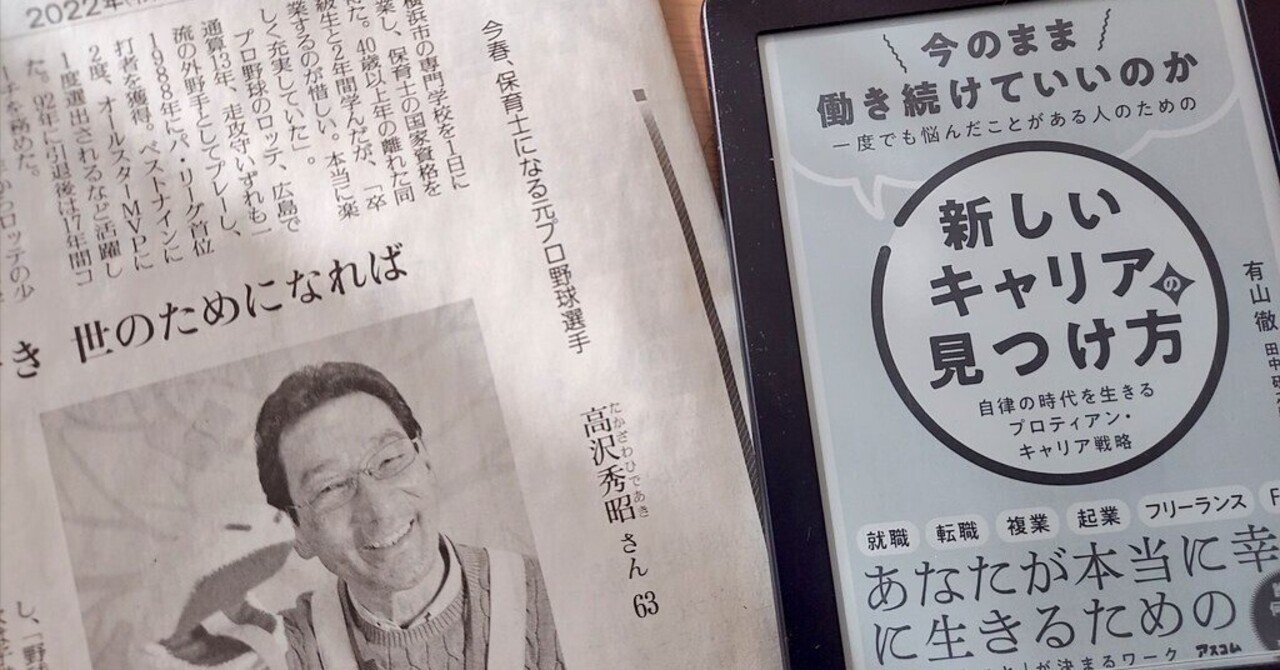 2022年
今春、保育士になる元プロ野球選手
高沢秀昭さん 63
たかざわひであき
横浜市の専門学校を1日に
業し、保育士の国家資格を
た。40歳以上年の離れた同
級生と2年間学んだが、「卒
業するのが惜しい。本当に楽
しく充実していた」。
プロ野球のロッテ、広島で
通算13年、走攻守いずれも一
流の外野手としてプレーし、
1988年にパ・リーグ首位
打者を獲得。ベストナインに
2度、オールスターMVPに
1度選出されるなど活躍し
た。92年に引退後は17年間コ
を務めた。
からロッテの少
き 世のためになれば
し、「野
今のまま
働き続けていいのか
一度でも悩んだことがある人のための
新しい
キャリアの
見つけ方
自律の時代を生きる
プロティアン・
キャリア戦略
有山徹
田中研
就職 転職 複業 起業 フリーランス F
あなたが本当に幸
に生きるための
が決まるワーク アスコム